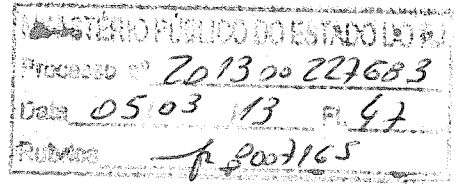 MINISTÉRIO PÚBLICO DO ESTADO DO RJ
Processo nº 2013 00 227683
Data 05/03/13 Fl. 47
Rubrica 8007165